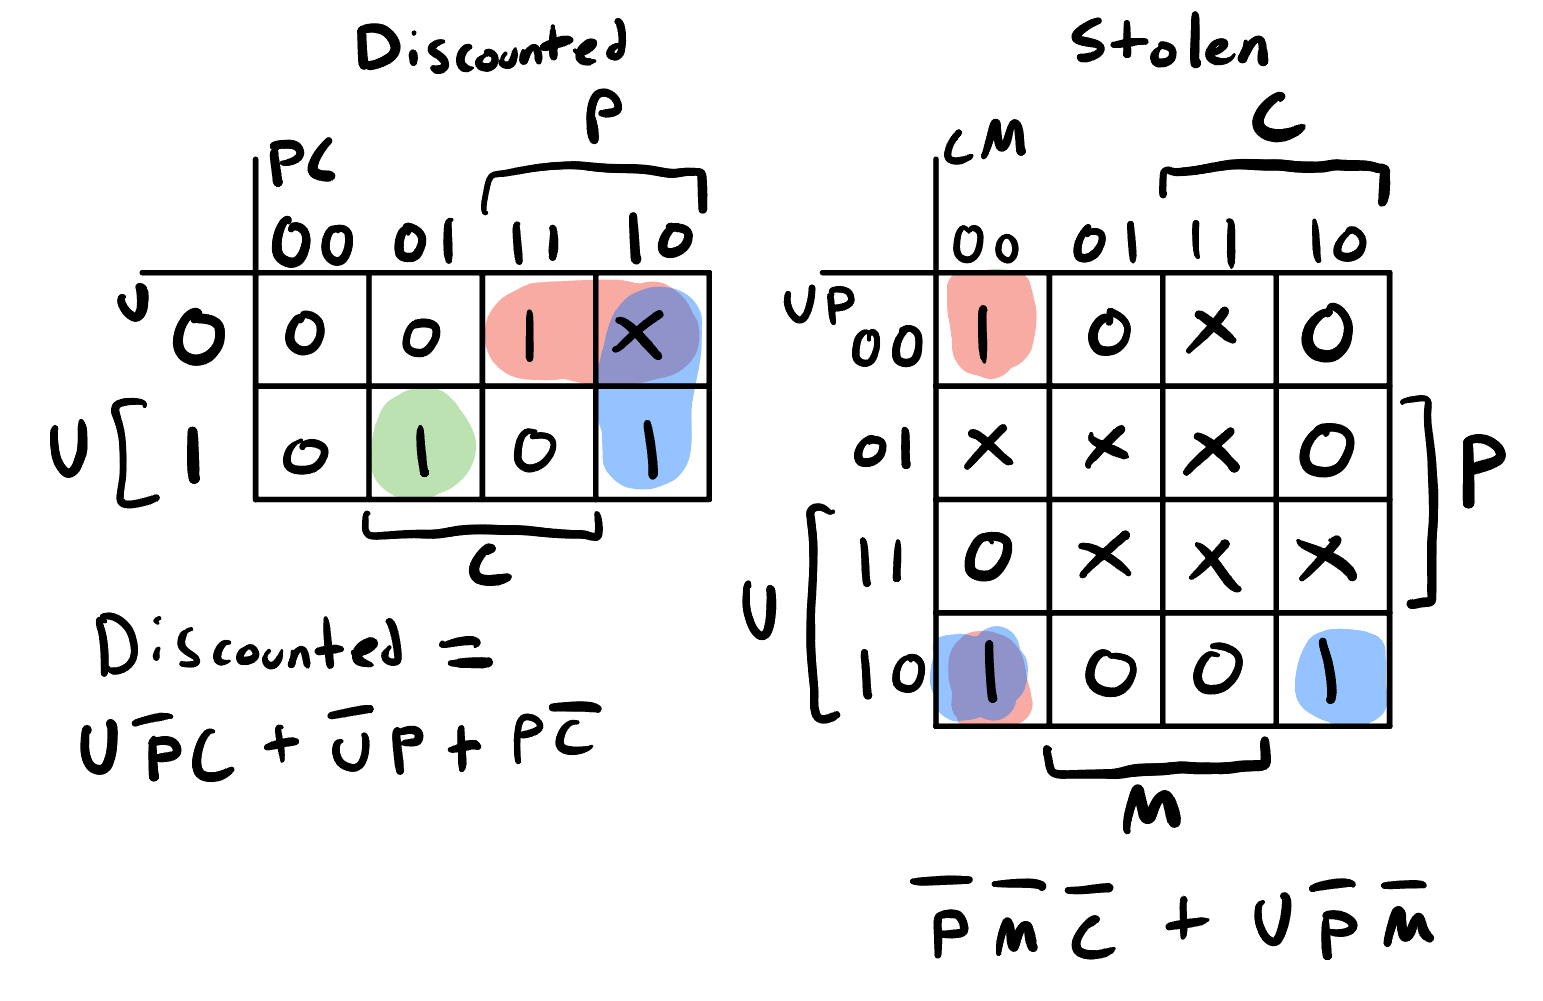 Discounted
P
PC
00 01 11 10
U
0 0 0 1 X
U [ 1 0 1 0 1
C
Discounted =
UP̅C + U̅P + PC̅
Stolen
C
CM
00 01 11 10
UP
00 1 0 X 0
01 X X X 0
P
11 0 X X X
U
10 1 0 0 1
M
P̅ M̅ C̅ + U P̅ M̅